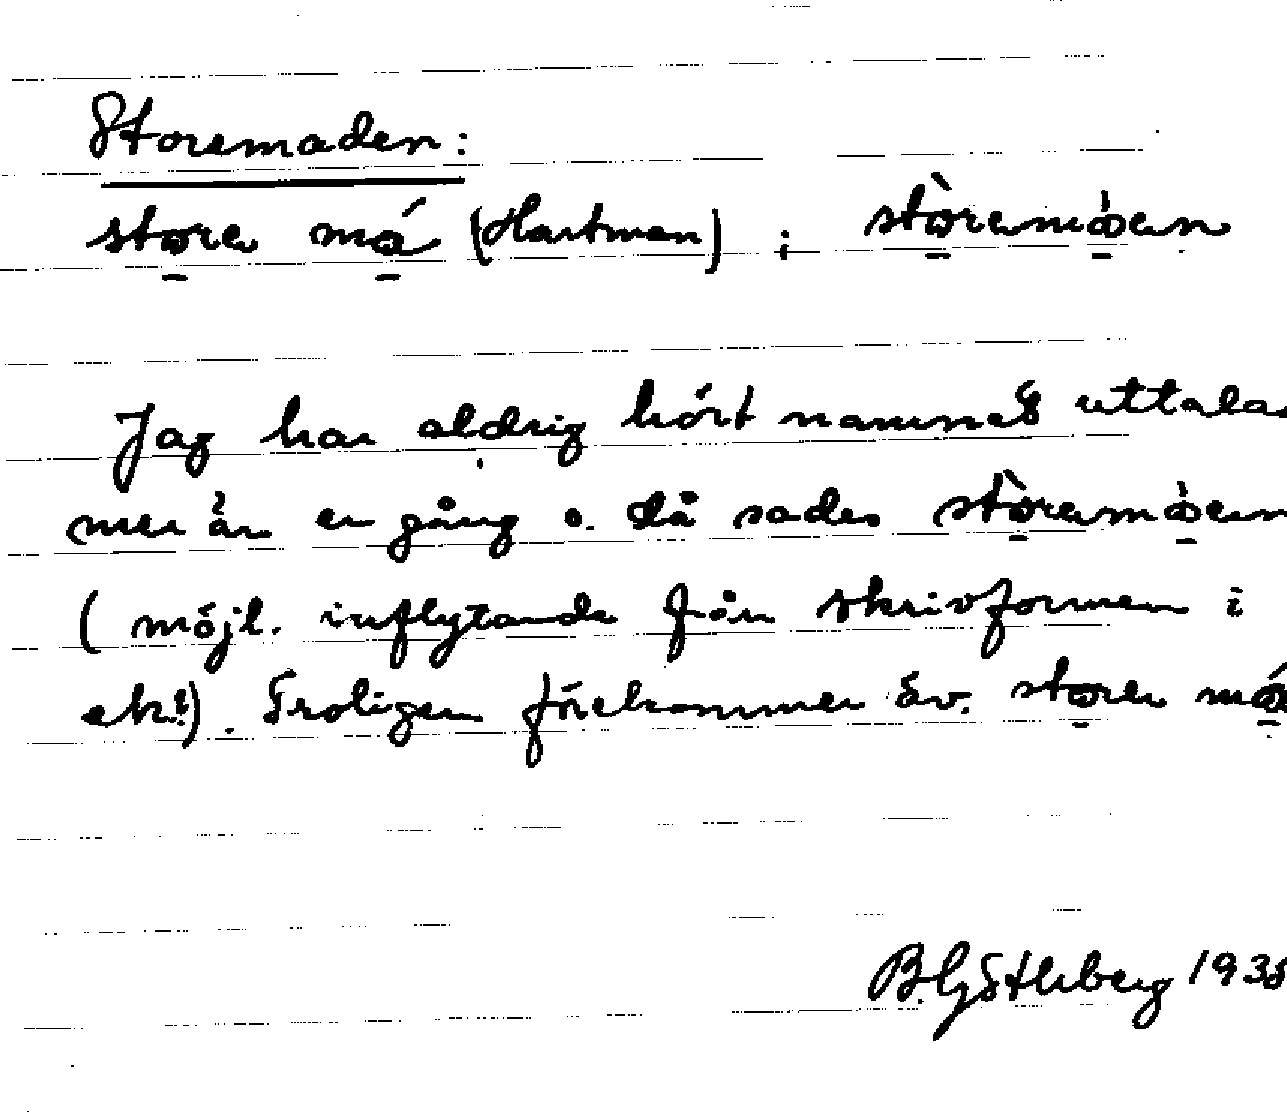 Storemaden:
store má (Hartman) ; stòremòen
Jag har aldrig hört namnet uttalas
mer än en gång o. då sades stòremòen
( möjl. inflytande från skrivformen i
ek!). Troligen förekommer äv. store má
B. Götlberg 193